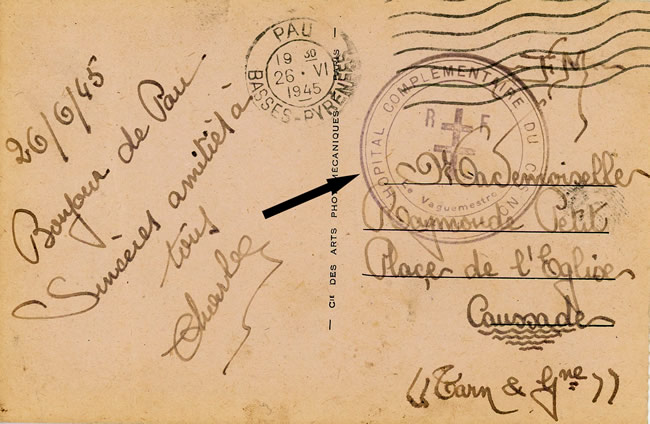 26/6/45
Bonjour de Pau
Sincères amitiés à
tous
Charles
PAU
19 30
26 · VI
1945
BASSES-PYRENEES
— Cie DES ARTS PHOTOMÉCANIQUES
F.M.
HOPITAL COMPLEMENTAIRE DU
R F
Le Vaguemestre
Mademoiselle
Raymonde Petit
Place de l'Eglise
Caussade
((Tarn & Gne))